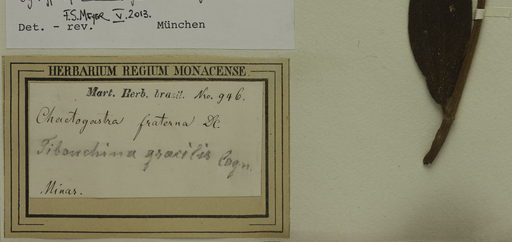 F.S. Meyer V. 2013.
Det. - rev. München
HERBARIUM REGIUM MONACENSE.
Mart. Herb. brasil. No. 946.
Chaetogastra fraterna DC.
Tibouchina gracilis Cogn.
Minas.